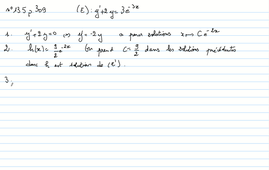 n°135 p 309 (E): y'+2y = 3e^{-3x}
1. y'+2y=0 ⇔ y'=-2y a pour solutions x ↦ Ce^{-2x}
2. h(x) = 9/2 e^{-2x} (on prend C = 9/2 dans les solutions précédentes
donc h est solution de (E').
3,